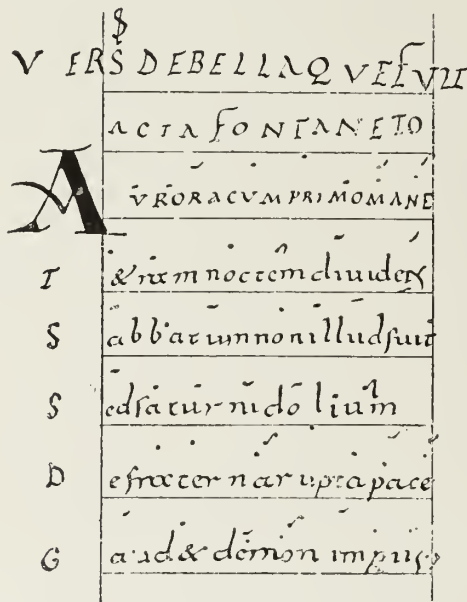 VERS DEBELLAQVEFVIT
ACTA FONTANETO
AVRORACVMPRIMOMANE
T&ram noctem diuidens
Sabbatum non illud fuit
Sed saturni dolium
De fraterna rupta pace
Gaud& demon impius